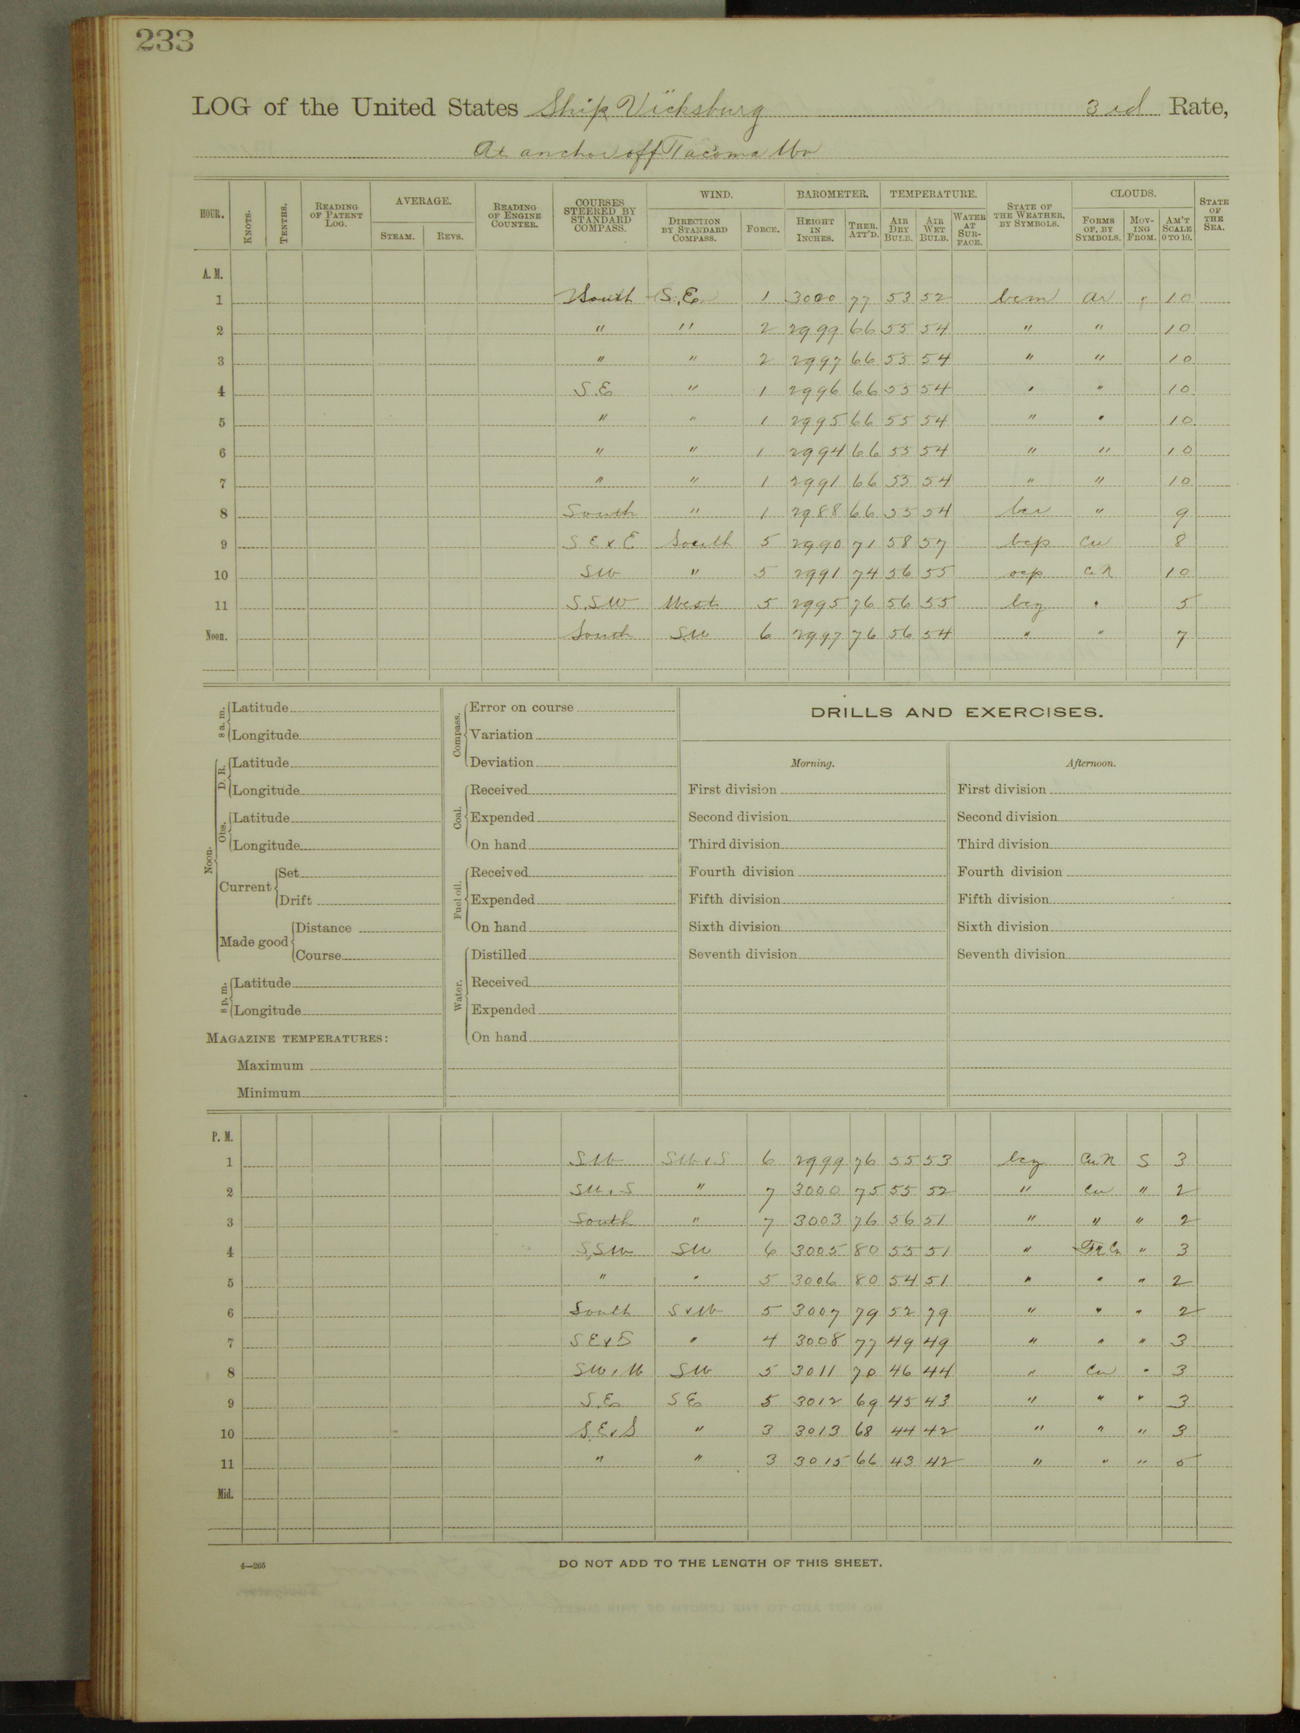 233
LOG of the United States Ship Vicksburg 3rd Rate,
At anchor off Tacoma Wn
HOUR. KNOTS. TENTHS. READING OF PATENT LOG. AVERAGE. STEAM. REVS. READING OF ENGINE COUNTER. COURSES STEERED BY STANDARD COMPASS. WIND. DIRECTION BY STANDARD COMPASS. FORCE. BAROMETER. HEIGHT IN INCHES. THER. ATT'D. TEMPERATURE. AIR DRY BULB. AIR WET BULB. WATER AT SURFACE. STATE OF THE WEATHER, BY SYMBOLS. CLOUDS. FORMS OF, BY SYMBOLS. MOVING FROM. AM'T SCALE 0 TO 10. STATE OF THE SEA.
A. M.
1 South S.E. 1 3000 77 53 52 bcm 10
2 " " 2 2999 66 55 54 " " 10
3 " " 2 2997 66 55 54 " " 10
4 S.E " 1 2996 66 55 54 " " 10
5 " " 1 2995 66 55 54 " " 10
6 " " 1 2994 66 55 54 " " 10
7 " " 1 2991 66 55 54 " " 10
8 South " 1 2988 66 55 54 " 9
9 S E x E South 5 2990 71 58 57 bcp Cu 8
10 SW " 5 2991 74 56 55 ocp C N 10
11 S.SW West 5 2995 76 56 55 bcq " 5
Noon. South SW 6 2997 76 56 54 " " 7
8 a. m. Latitude
Longitude
Noon. D. R. Latitude
Longitude
Obs. Latitude
Longitude
Current Set
Drift
Made good Distance
Course
8 p. m. Latitude
Longitude
MAGAZINE TEMPERATURES:
Maximum
Minimum
Compass. Error on course
Variation
Deviation
Coal. Received
Expended
On hand
Fuel oil. Received
Expended
On hand
Water. Distilled
Received
Expended
On hand
DRILLS AND EXERCISES.
Morning. Afternoon.
First division First division
Second division Second division
Third division Third division
Fourth division Fourth division
Fifth division Fifth division
Sixth division Sixth division
Seventh division Seventh division
P. M.
1 SW SWxS 6 2999 76 55 53 bcq Cu N S 3
2 SWxS " 7 3000 75 55 52 " Cu " 2
3 South " 7 3003 76 56 51 " " " 2
4 S,SW SW 6 3005 80 55 51 " Fr Cu " 3
5 " " 5 3006 80 54 51 " " " 2
6 South SxW 5 3007 79 52 79 " " " 2
7 SExS " 4 3008 77 49 49 " " " 3
8 SWxW SW 5 3011 70 46 44 " Cu " 3
9 S.E. SE 5 3012 69 45 43 " " " 3
10 S.ExS " 3 3013 68 44 42 " " " 3
11 " " 3 3015 66 43 42 " " " 5
Mid.
4—265
DO NOT ADD TO THE LENGTH OF THIS SHEET.